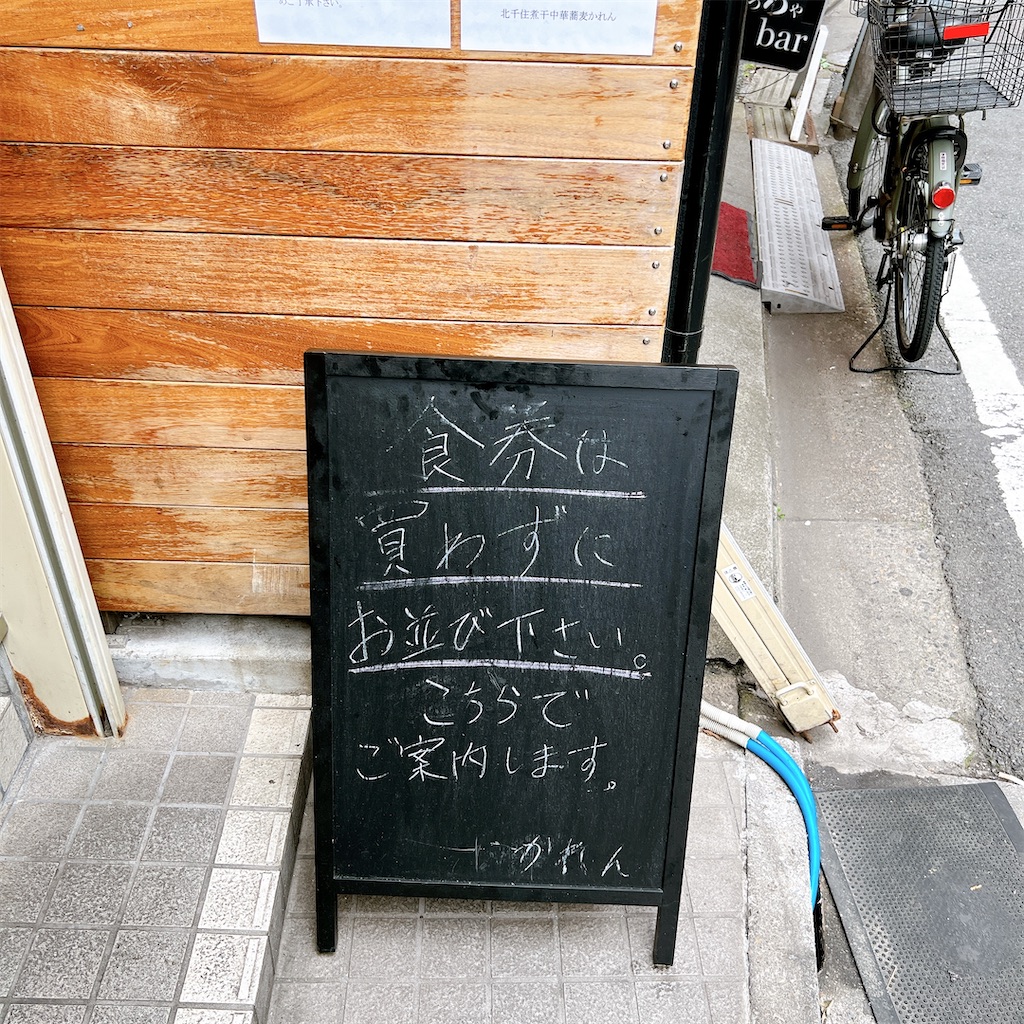 めご了承下さい。
北千住煮干中華蕎麦かれん
bar
食券は
買わずに
お並び下さい。
こちらで
ご案内します。
かれん